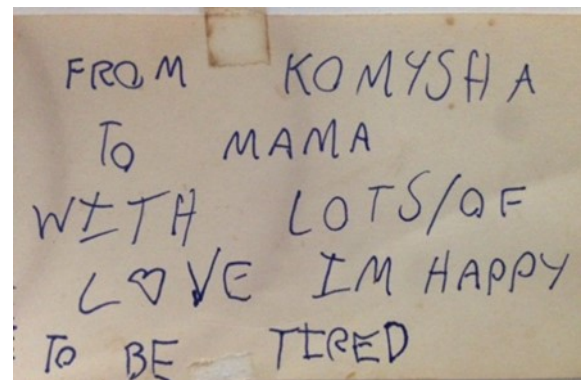 FROM KOMYSHA
TO MAMA
WITH LOTS/OF
L♡VE IM HAPPY
TO BE TIRED